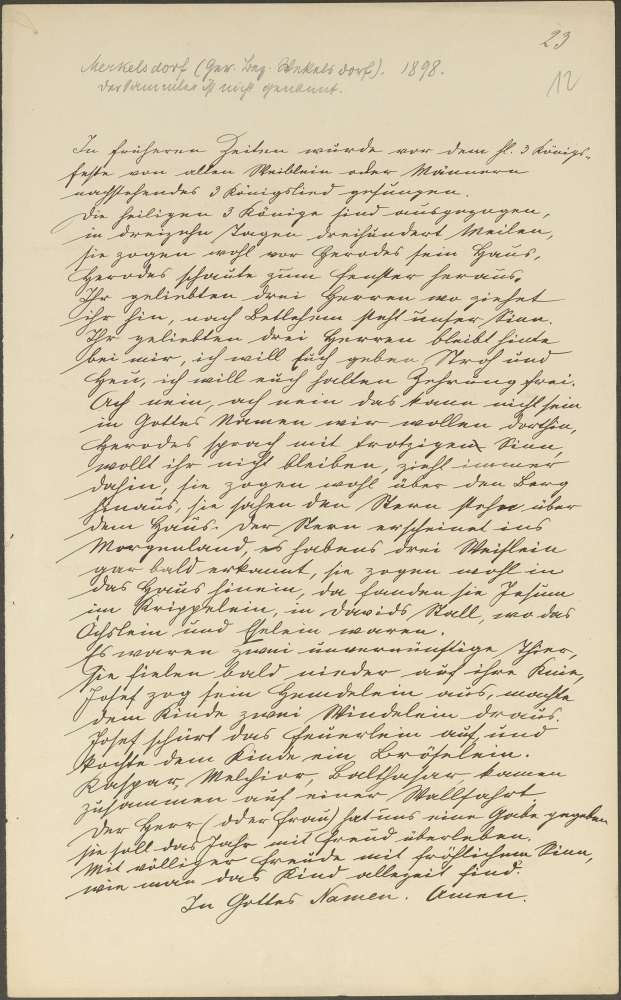 23
Merkelsdorf (Ger. Bez. Wekelsdorf). 1898.
Der Sammler ist nicht genannt.
12
In früheren Zeiten wurde vor dem hl. 3 Königs-
feste von alten Weiblein oder Männern
nachstehendes 3 Königslied gesungen.
Die heiligen 3 Könige sind ausgezogen,
in dreizehn Tagen dreihundert Meilen,
sie zogen wohl vor Herodes sein Haus,
Herodes schaute zum Fenster heraus.
Ihr geliebten drei Herren wo ziehet
ihr hin, nach Betlehem steht unser Sinn.
Ihr geliebten drei Herren bleibt hinte
bei mir, ich will Euch geben Stroh und
Heu, ich will euch halten Zehrung frei.
Ach nein, ach nein das kann nicht sein
in Gottes Namen wir wollen dorthin,
Herodes sprach mit trotzigen Sinn,
wollt ihr nicht bleiben, zieht immer
dahin, sie zogen wohl über den Berg
hinaus, sie sahen den Stern stehn über
dem Haus. Der Stern erscheinet ins
Morgenland, es habens drei Weislein
gar bald erkannt, sie zogen wohl in
das Haus hinein, da fanden sie Jesum
im Krippelein, in Davids Stall, wo das
Öchslein und Eselein waren.
Es waren zwei unvernünftige Thier,
sie fielen bald nieder auf ihre Knie,
Josef zog sein Hemdelein aus, machte
dem Kinde zwei Windelein draus.
Josef schürt das Feuerlein auf, und
kochte dem Kinde ein Bröselein.
Kaspar, Melchior, Balthasar kamen
zusammen auf einer Wallfahrt
Der Herr (oder Frau) hat uns eine Gabe gegeben
sie soll das Jahr mit Freud überleben.
Mit völliger Freude mit fröhlichem Sinn,
wie man das Kind allezeit find.
In Gottes Namen. Amen.